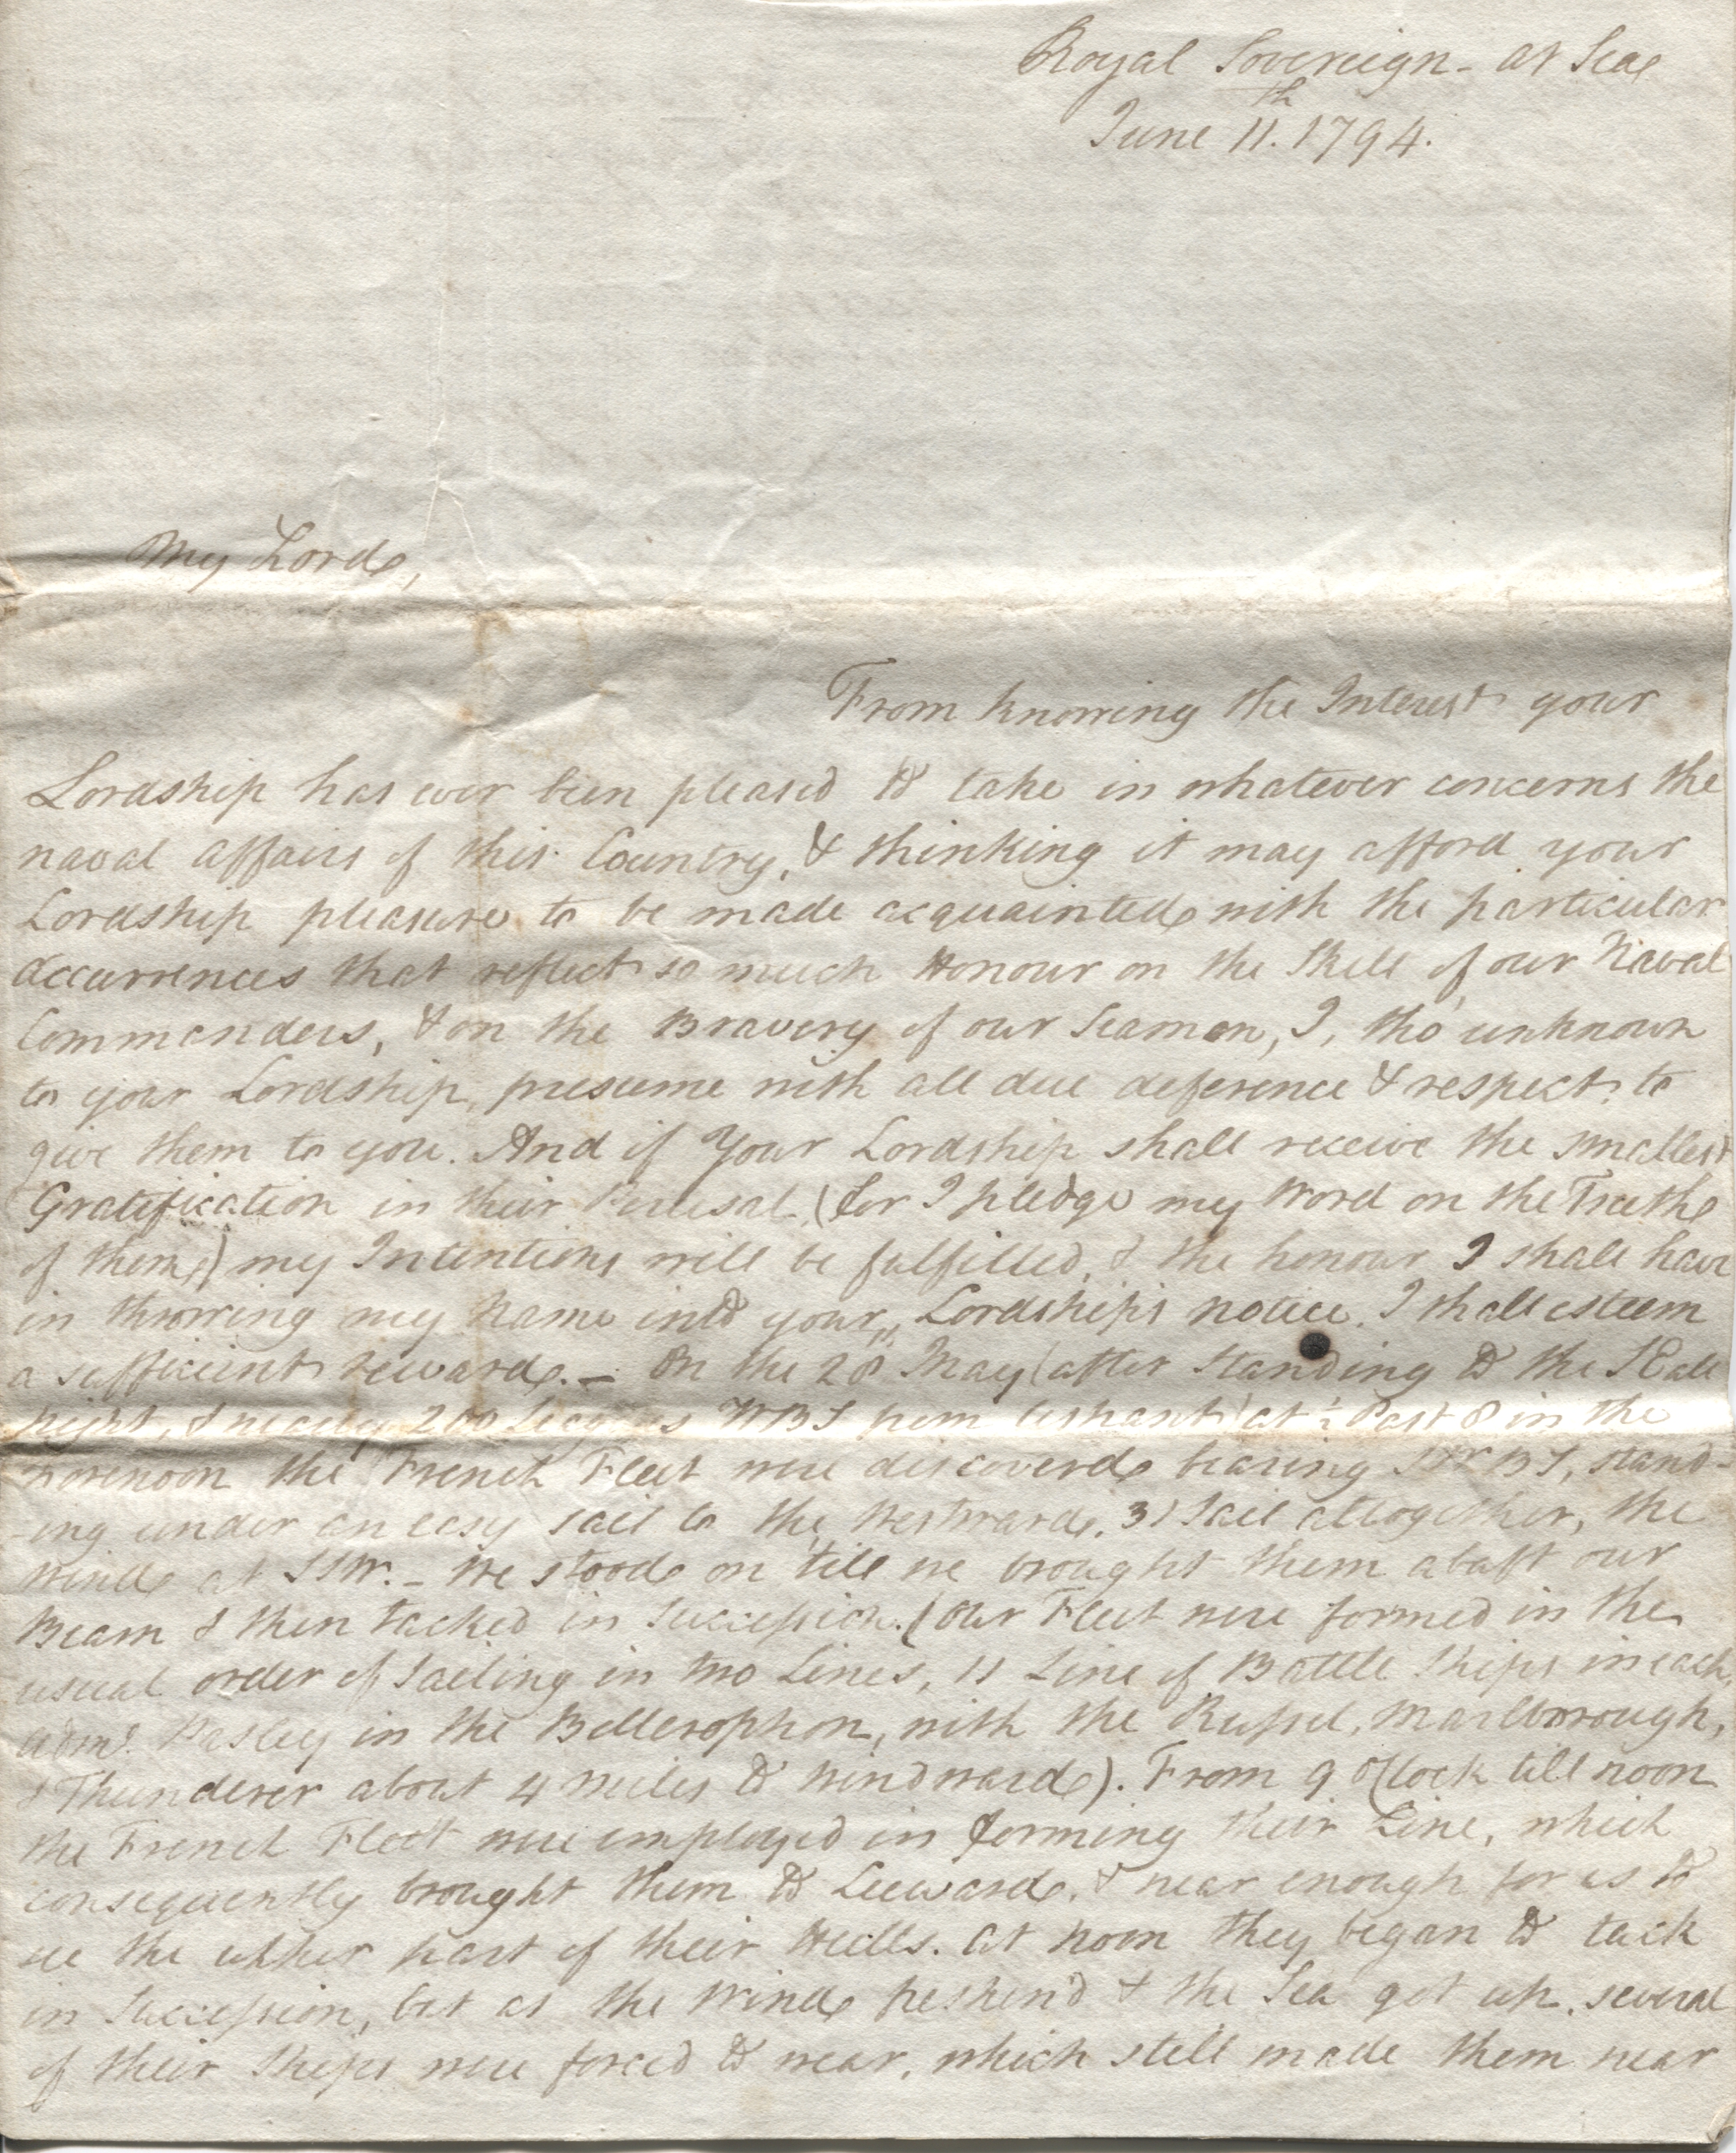 Royal Sovereign - at Sea
June 11th. 1794.
My Lord,
From knowing the Interest your
Lordship has ever been pleased to take in whatever concerns the
naval affairs of this Country, & thinking it may afford your
Lordship pleasure to be made acquainted with the particular
Occurrences that reflect so much Honour on the Skill of our Naval
Commanders, & on the Bravery of our Seamen, I, tho' unknown
to your Lordship, presume with all due deference & respect to
give them to you. And if Your Lordship shall receive the smallest
Gratification in their Perusal (for I pledge my Word on the Truth
of them,) my Intentions will be fulfilled, & the honour I shall have
in throwing my Name into your Lordship's notice, I shall esteem
a sufficient reward. - On the 28th May (after standing to the S all
night, & nearly 200 Leagues WBS from Ushant) at ½ Past 8 in the
Forenoon the French Fleet were discovered bearing SWBS, stand-
-ing under an easy sail to the Westward, 31 Sail alltogether, the
Wind at SSW. - We stood on 'till we brought them abaft our
Beam & then tacked in Succession. (Our Fleet were formed in the
usual order of Sailing in two Lines, 11 Line of Battle Ships in each,
Adml. Pasley in the Bellerophon, with the Russel, Marlborrough,
& Thunderer about 4 Miles to Windward). From 9 o'Clock till noon
the French Fleet were employed in forming their Line, which
consequently brought them to Leeward, & near enough for us to
see the upper part of their Hulls. At Noon they began to tack
in Succession, but as the Wind freshen'd & the Sea got up, several
of their Ships were forced to wear, which still made them near